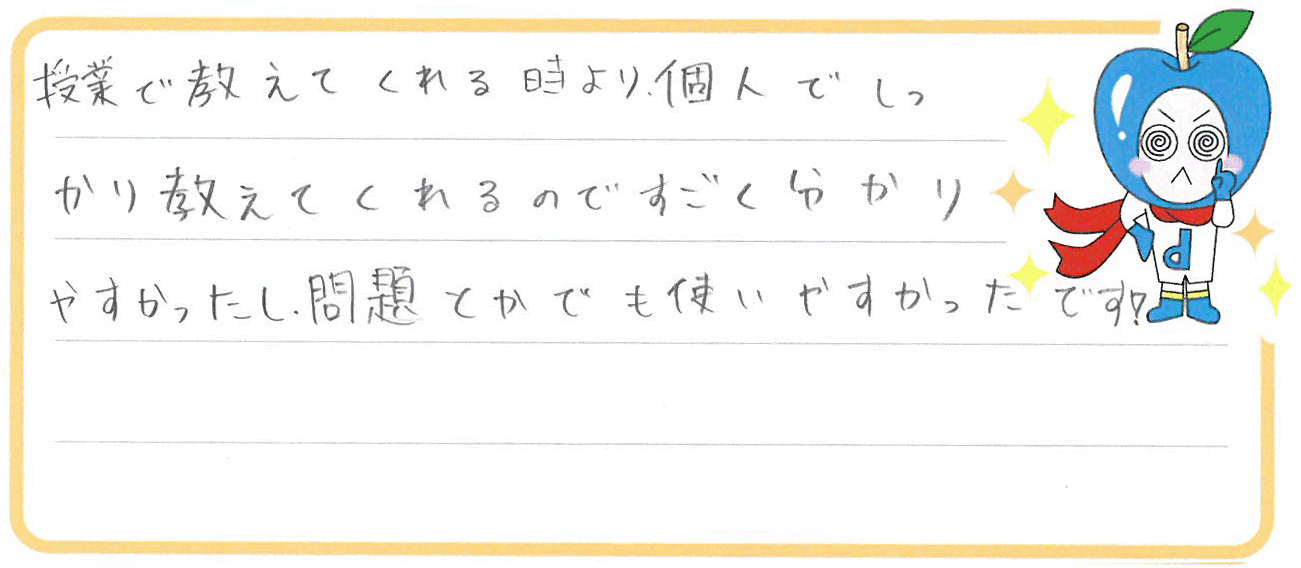 授業で教えてくれる時より、個人でしっ
かり教えてくれるのですごく分かり
やすかったし、問題とかでも使いやすかったです!
d